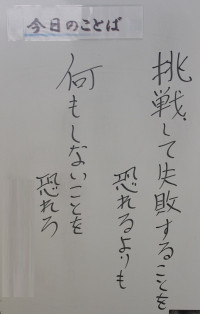 今日のことば
挑戦して失敗することを
恐れるよりも
何もしないことを
恐れろ